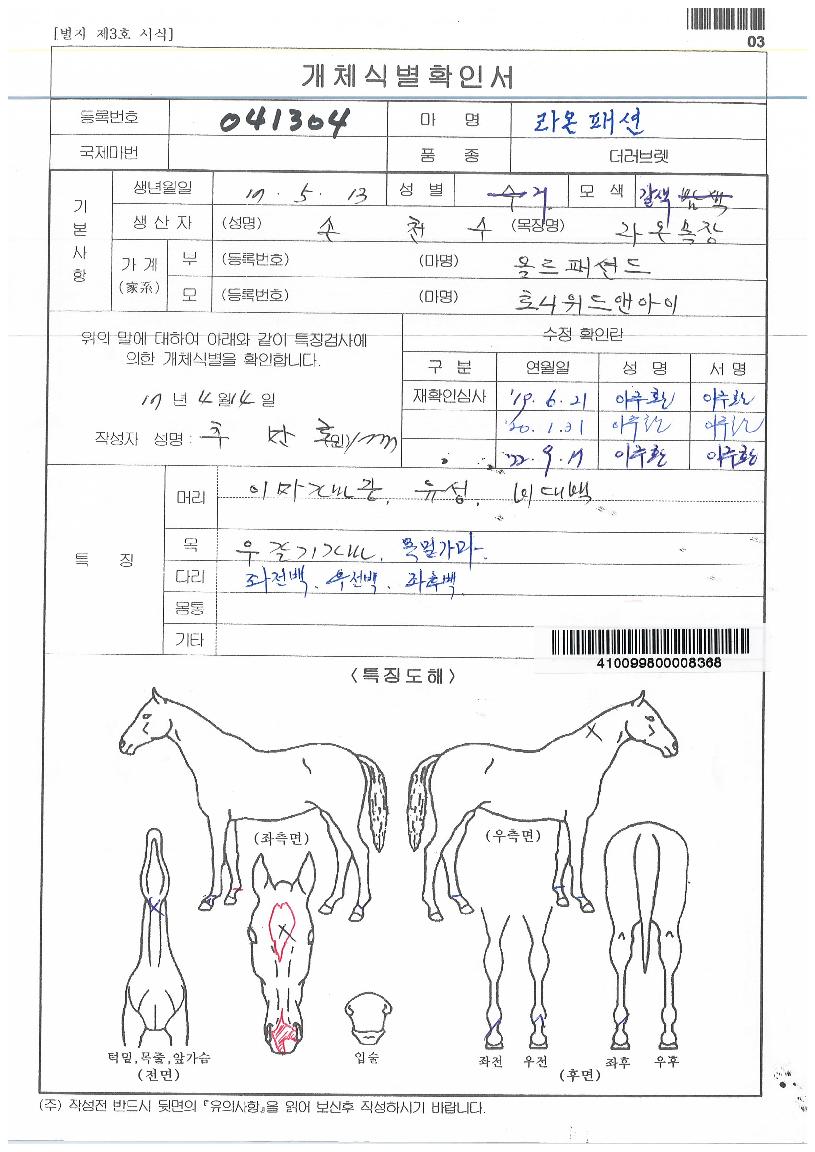 [별지 제3호 서식]
03
개체식별확인서
등록번호 041304 마 명 라온패션
국제마번 품 종 더러브렛
기본사항
생년월일 17. 5. 13 성 별 수 거 모 색 갈색
생 산 자 (성명) 손 천 수 (목장명) 라온목장
가 계 (家系)
부 (등록번호) (마명) 올드패션드
모 (등록번호) (마명) 호니위드앤아이
위의 말에 대하여 아래와 같이 특징검사에
의한 개체식별을 확인합니다.
17 년 4 월 14 일
작성자 성명 : (인)
수정 확인란
구 분 연월일 성 명 서 명
재확인심사 '19. 6. 21 이주환 이주환
'20. 1. 31 이주환 이주환
'22. 9. 17 이주환 이주환
특 징
머리 이마가마, 유성, 비대백
목 우줄기가마, 목밑가마
다리 좌전백, 우전백, 좌후백
몸통
기타
410099800008368
<특징도해>
(좌측면)
(우측면)
턱밑,목줄,앞가슴
(전면)
입술
좌전 우전 좌후 우후
(후면)
(주) 작성전 반드시 뒷면의 『유의사항』을 읽어 보신후 작성하시기 바랍니다.